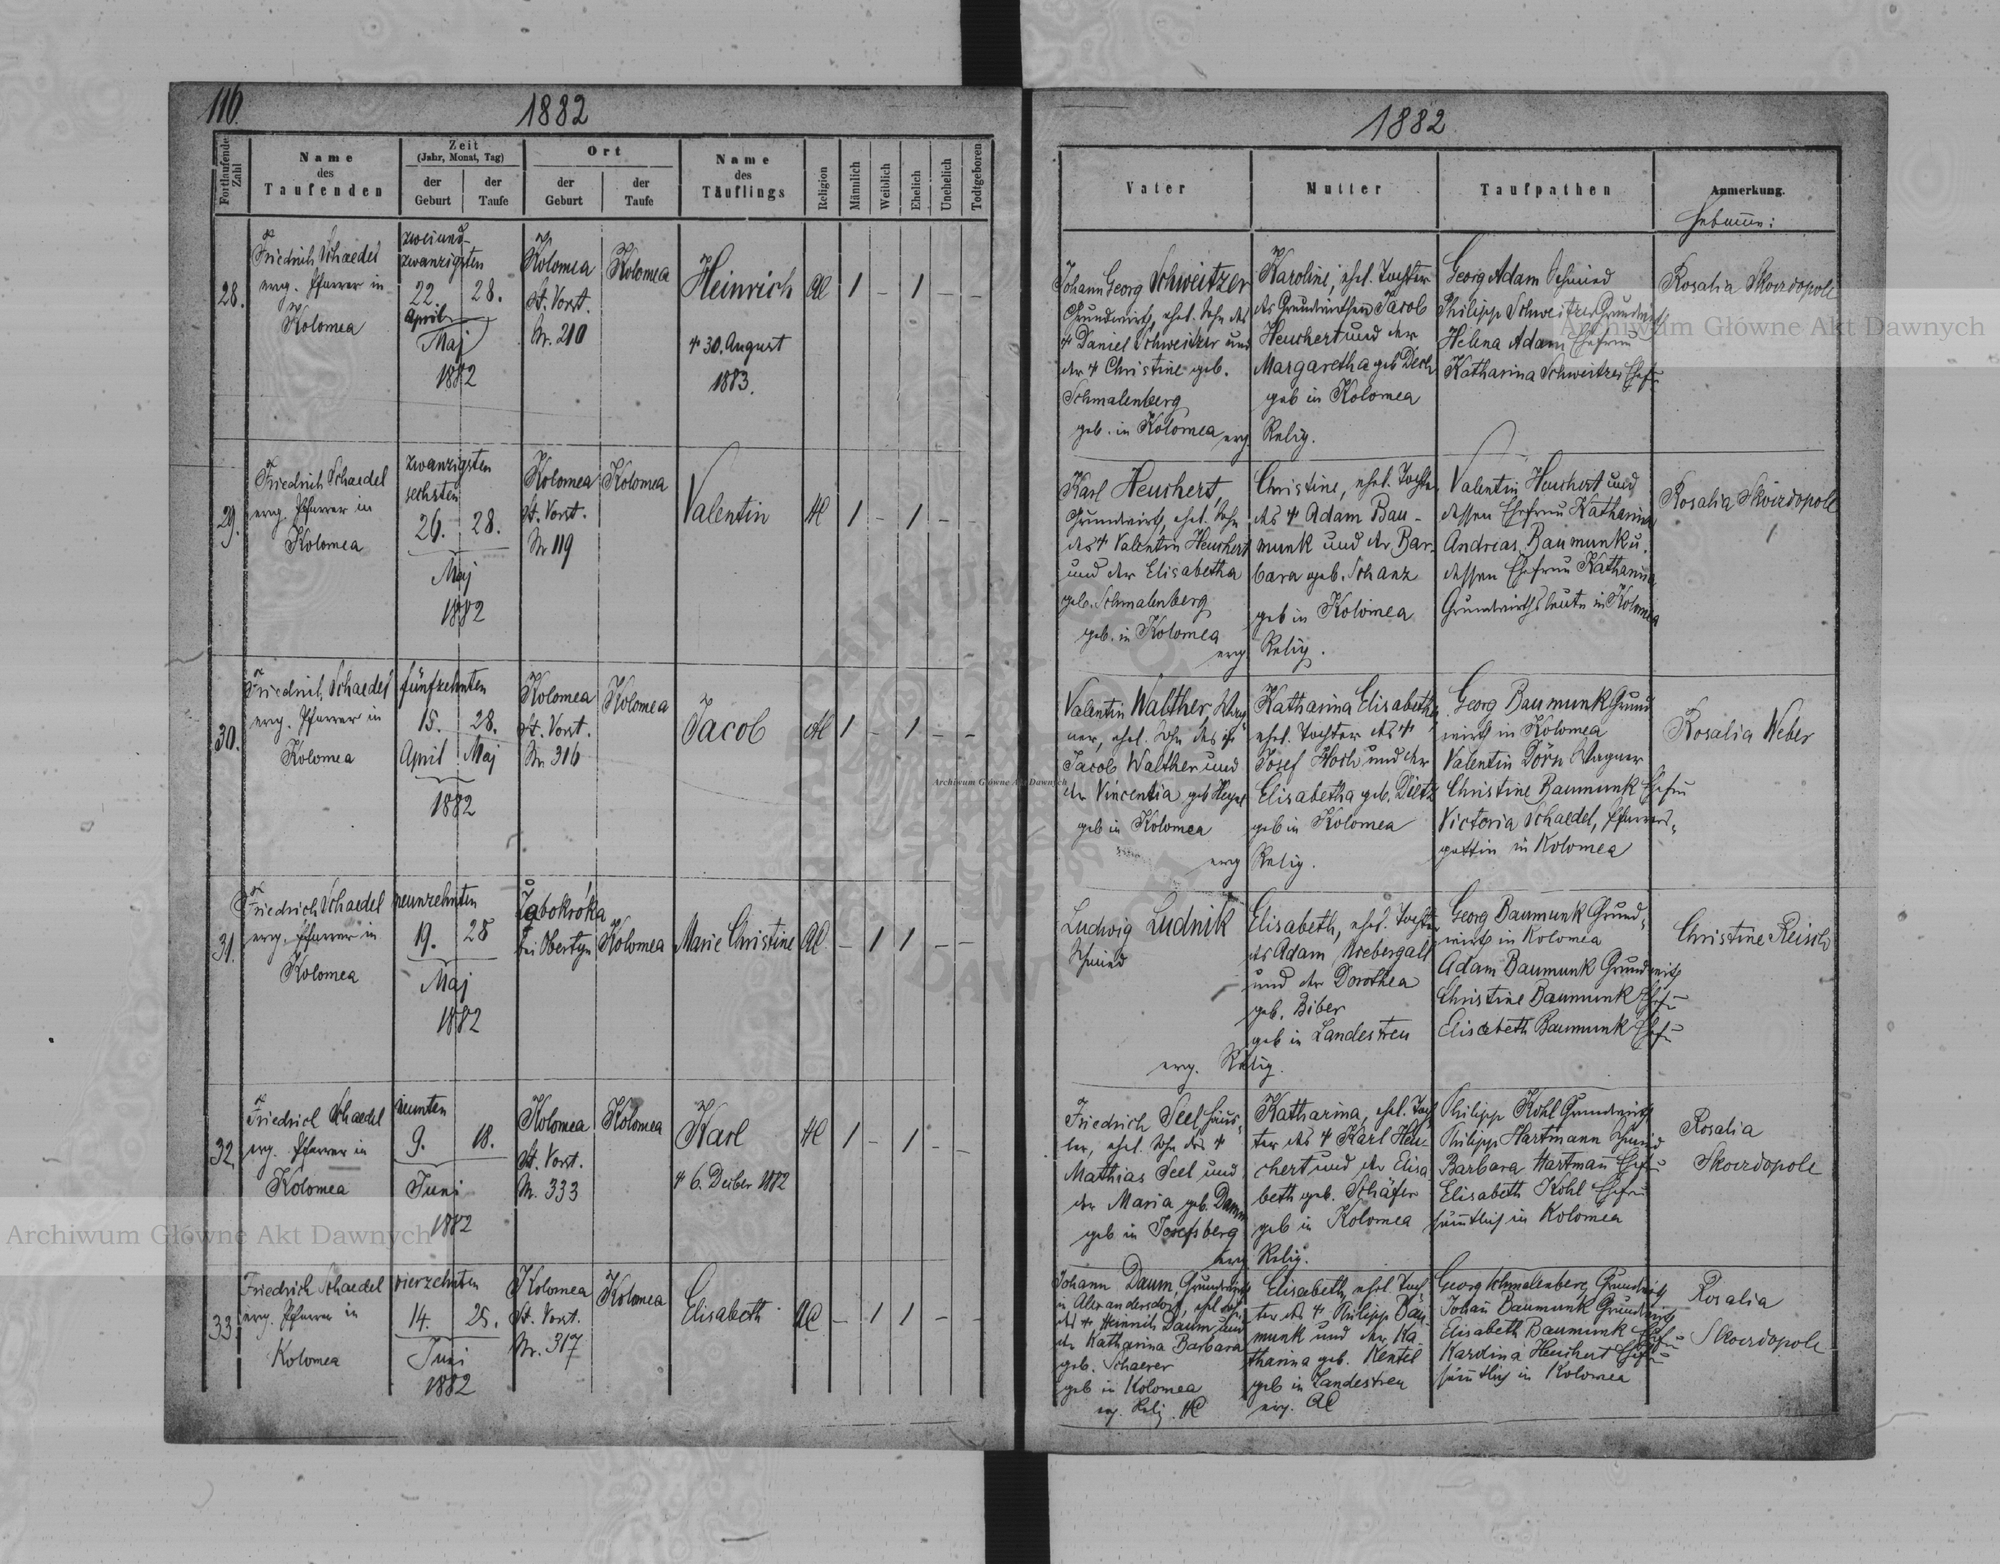 116.
1882
Fortlaufende Zahl
Name des Taufenden
Zeit (Jahr, Monat, Tag)
der Geburt
der Taufe
Ort
der Geburt
der Taufe
Name des Täuflings
Religion
Männlich
Weiblich
Ehelich
Unehelich
Todtgeboren
28.
Friedrich Schaedel
evg. Pfarrer in
Kolomea
zweiund-
zwanzigsten
22.
28.
April
Maj
1882
Kolomea
St. Vorst.
Nr. 210
Kolomea
Heinrich
† 30. August
1883.
AC
1
–
1
–
–
29.
Friedrich Schaedel
evg. Pfarrer in
Kolomea
zwanzigsten
sechsten
26.
28.
Maj
1882
Kolomea
St. Vorst.
Nr 119
Kolomea
Valentin
AC
1
–
1
–
–
30.
Friedrich Schaedel
evg. Pfarrer in
Kolomea
fünfzehnten
15.
28.
April
Maj
1882
Kolomea
St. Vorst.
Nr. 316
Kolomea
Jacob
AC
1
–
1
–
–
31.
Friedrich Schaedel
evg. Pfarrer in
Kolomea
neunzehnten
19.
28
Maj
1882
bei Obertyn
Kolomea
Marie Christine
AC
–
1
1
–
–
32.
Friedrich Schaedel
evg. Pfarrer in
Kolomea
neunten
9.
18.
Juni
1882
Kolomea
St. Vorst.
Nr. 333
Kolomea
Karl
† 6. Dezber 1882
AC
1
–
1
–
–
33.
Friedrich Schaedel
evg. Pfarrer in
Kolomea
vierzehnten
14.
25.
Juni
1882
Kolomea
St. Vorst.
Nr. 317
Kolomea
Elisabeth
AC
–
1
1
–
–
1882
Vater
Mutter
Taufpathen
Anmerkung.
Hebamme:
Johann Georg Schweitzer
Grundwirth, ehel. Sohn des
† Daniel Schweitzer und
der † Christine geb.
Schmalenberg
geb. in Kolomea evg.
Karoline, ehel. Tochter
des Grundwirthen Jacob
Heuchert und der
Margaretha geb
geb in Kolomea
Relig.
Georg Adam Schmied
Philipp Schweitzer Grundwirth
Helena Adam Ehefrau
Katharina Schweitzer Ehefr
Rosalia Skwirdopole
Karl Heuchert,
Grundwirth, ehel. Sohn
des † Valentin Heuchert
und der Elisabetha
geb. Schmalenberg
geb. in Kolomea
evg
Christine, ehel. Tochter
des † Adam Bau-
munk und der Bar-
bara geb. Schanz
geb in Kolomea
Relig.
Valentin Heuchert und
dessen Ehefrau Katharina
Andreas Baumunk u.
dessen Ehefrau Katharina
Grundwirthsleute in Kolomea
Rosalia Skwirdopole
Valentin Walther, Wag-
ner, ehel. Sohn des
Jacob Walther und
der Vincentia geb
geb in Kolomea
evg
Katharina Elisabetha
ehel. Tochter des †
Josef Hoch und der
Elisabetha geb. Dietz
geb in Kolomea
Relig.
Georg Baumunk Grund
wirth in Kolomea
Valentin Dörn Wagner
Christine Baumunk Ehefr
Victoria Schaedel, Pfarrers-
gattin in Kolomea
Rosalia Weber
Ludwig Ludnik
Schmied
Elisabeth, ehel. Tochter
des Adam
und der Dorothea
geb. Biber
geb in Landestreu
evg. Relig.
Georg Baumunk Grund-
wirth in Kolomea
Adam Baumunk Grundwirth
Christine Baumunk Ehefr
Elisabeth Baumunk Ehefr
Christine Reisch
Friedrich Seel Häus-
ler, ehel. Sohn des †
Mathias Seel und
der Maria geb. Damm
geb in Josefsberg
evg
Katharina, ehel. Toch-
ter des † Karl Heu-
chert und der Elisa
beth geb. Schäfer
geb in Kolomea
Relig.
Philipp Kohl Grundwirth
Philipp Hartmann Schmied
Barbara Hartman Ehefr
Elisabeth Kohl Ehefr
sämtlich in Kolomea
Rosalia
Skwirdopole
Johann Daum, Grundwirth
in Alexandersdorf, ehel Sohn
des † Heinrich Daum und
der Katharina Barbara
geb. Schaerer
geb in Kolomea
evg. Relig. AC
Elisabeth, ehel. Toch-
ter des † Philipp Bau
munk und der Ka-
tharina geb. Kentel
geb in Landestreu
evg. AC
Georg Schmalenberg, Grundwirth
Johan Baumunk Grundwirth
Elisabeth Baumunk Ehefr
Karolina Heuchert Ehefr
sämtlich in Kolomea
Rosalia
Skwirdopole
Archiwum Główne Akt Dawnych
Archiwum Główne Akt Dawnych
Archiwum Główne Akt Dawnych